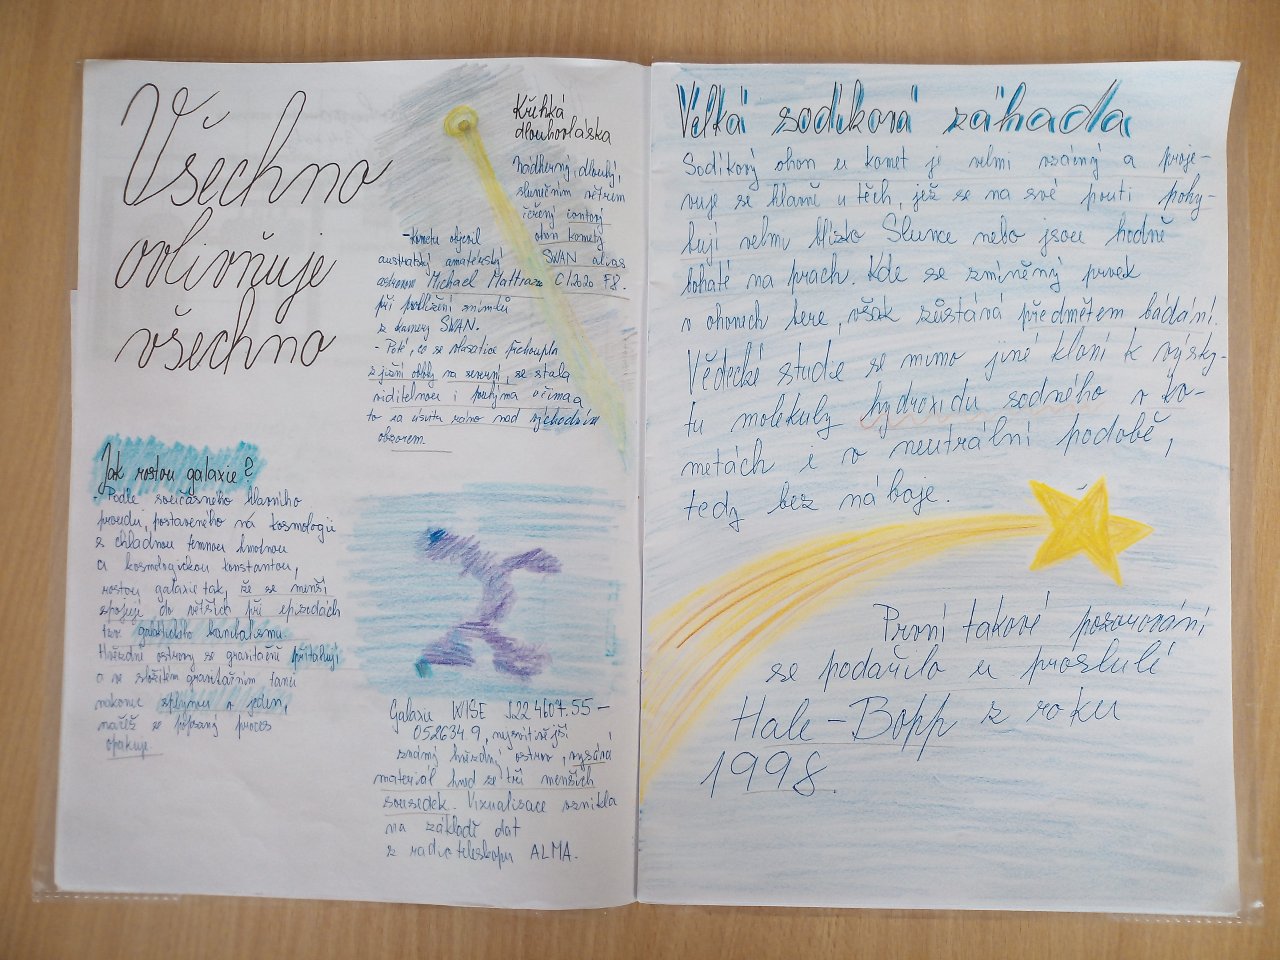 Všechno
ovlivňuje
všechno
Křehká
dlouhovláska
Nádherný, dlouhý,
slunečním větrem
čeřený iontový
ohon komety
SWAN alias
C/2020 F8.
- Kometu objevil
australský amatérský
astronom Michael Mattiazzo
při prohlížení snímků
z kamery SWAN.
- Poté, co se vlasatice přehoupla
z jižní oblohy na severní, se stala
viditelnou i pouhýma očima a
to za úsvitu ráno nad východním
obzorem.
Jak rostou galaxie?
- Podle současného hlavního
proudu, postaveného na kosmologii
s chladnou temnou hmotou
a kosmologickou konstantou,
rostou galaxie tak, že se menší
spojují do větších při epizodách
tzv. galaktického kanibalismu.
Hvězdné ostrovy se gravitačně přitahují
a ve složitém gravitačním tanci
nakonec splynou v jeden,
načež se popsaný proces
opakuje.
Galaxie WISE J224607.55–
052634.9, nejsvítivější
známý hvězdný ostrov, vysává
materiál hned ze tří menších
sousedek. Vizualizace vznikla
na základě dat
z radioteleskopu ALMA.
Velká sodíková záhada
Sodíkový ohon u komet je velmi vzácný a proje-
vuje se hlavně u těch, jež se na své pouti pohy-
bují velmi blízko Slunce nebo jsou hodně
bohaté na prach. Kde se zmíněný prvek
v ohonech bere, však zůstává předmětem bádání.
Vědecké studie se mimo jiné kloní k výsky-
tu molekuly hydroxidu sodného v ko-
metách i v neutrální podobě,
tedy bez náboje.
První takové pozorování
se podařilo u proslulé
Hale-Bopp z roku
1998.